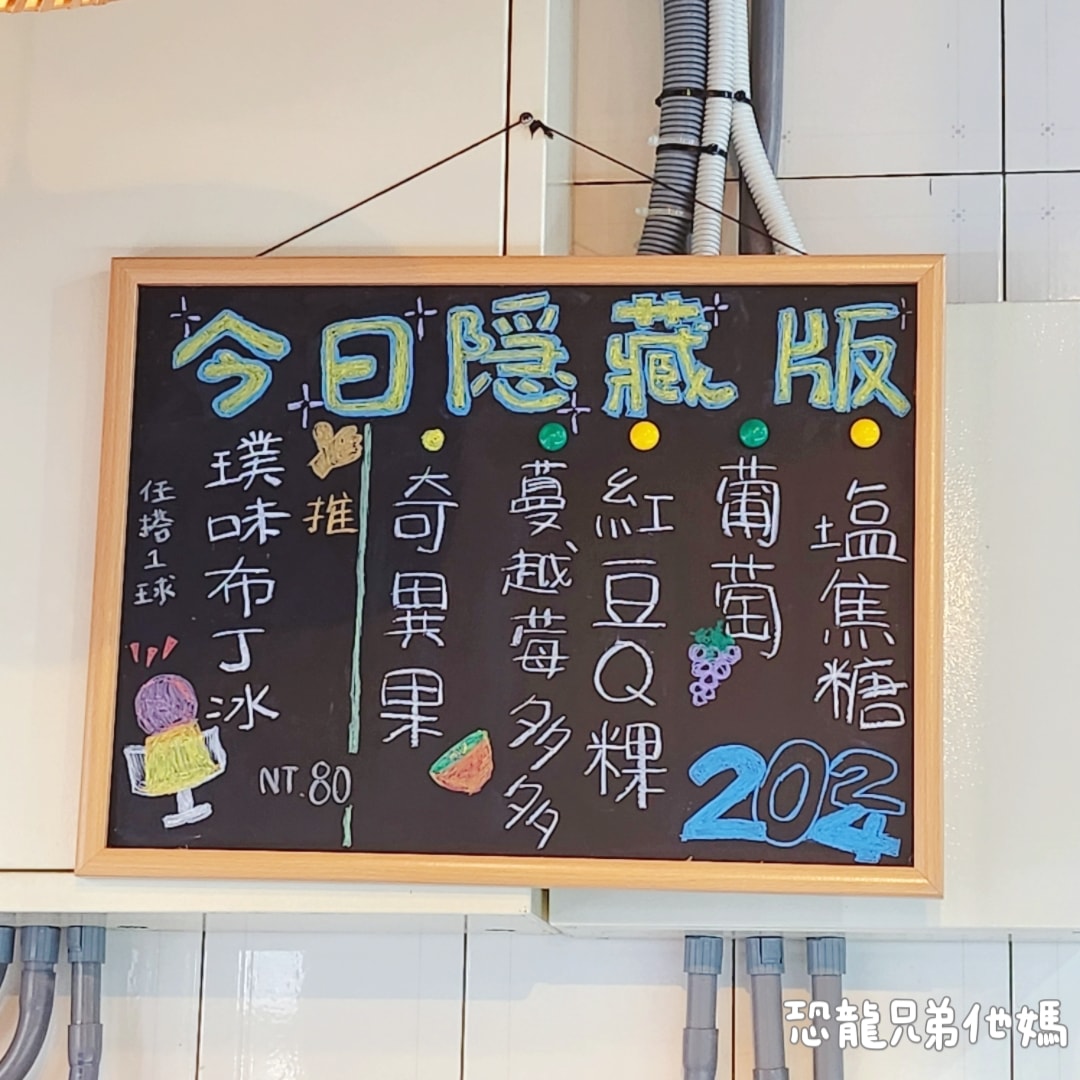 今日隱藏版
塩焦糖
葡萄
紅豆Q粿
蔓越莓多多
奇異果
推
璞味布丁冰
任搭1球
NT.80
2024
恐龍兄弟他媽